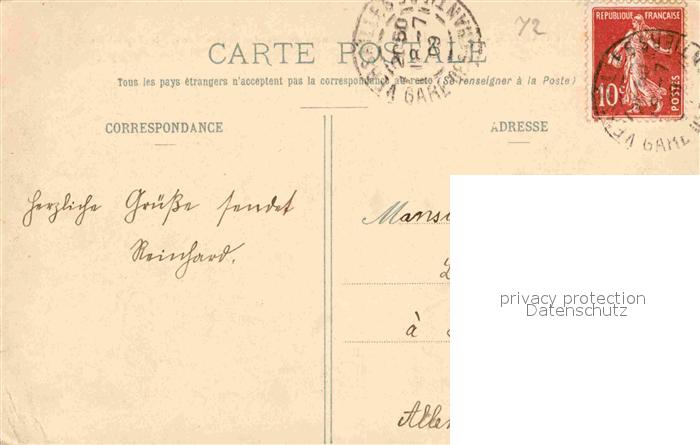 72
CARTE POSTALE
Tous les pays étrangers n'acceptent pas la correspondance au recto (Se renseigner à la Poste)
REPUBLIQUE FRANÇAISE
10c
POSTES
CORRESPONDANCE
ADRESSE
Herzliche Grüße sendet
Reinhard.
à
privacy protection
Datenschutz